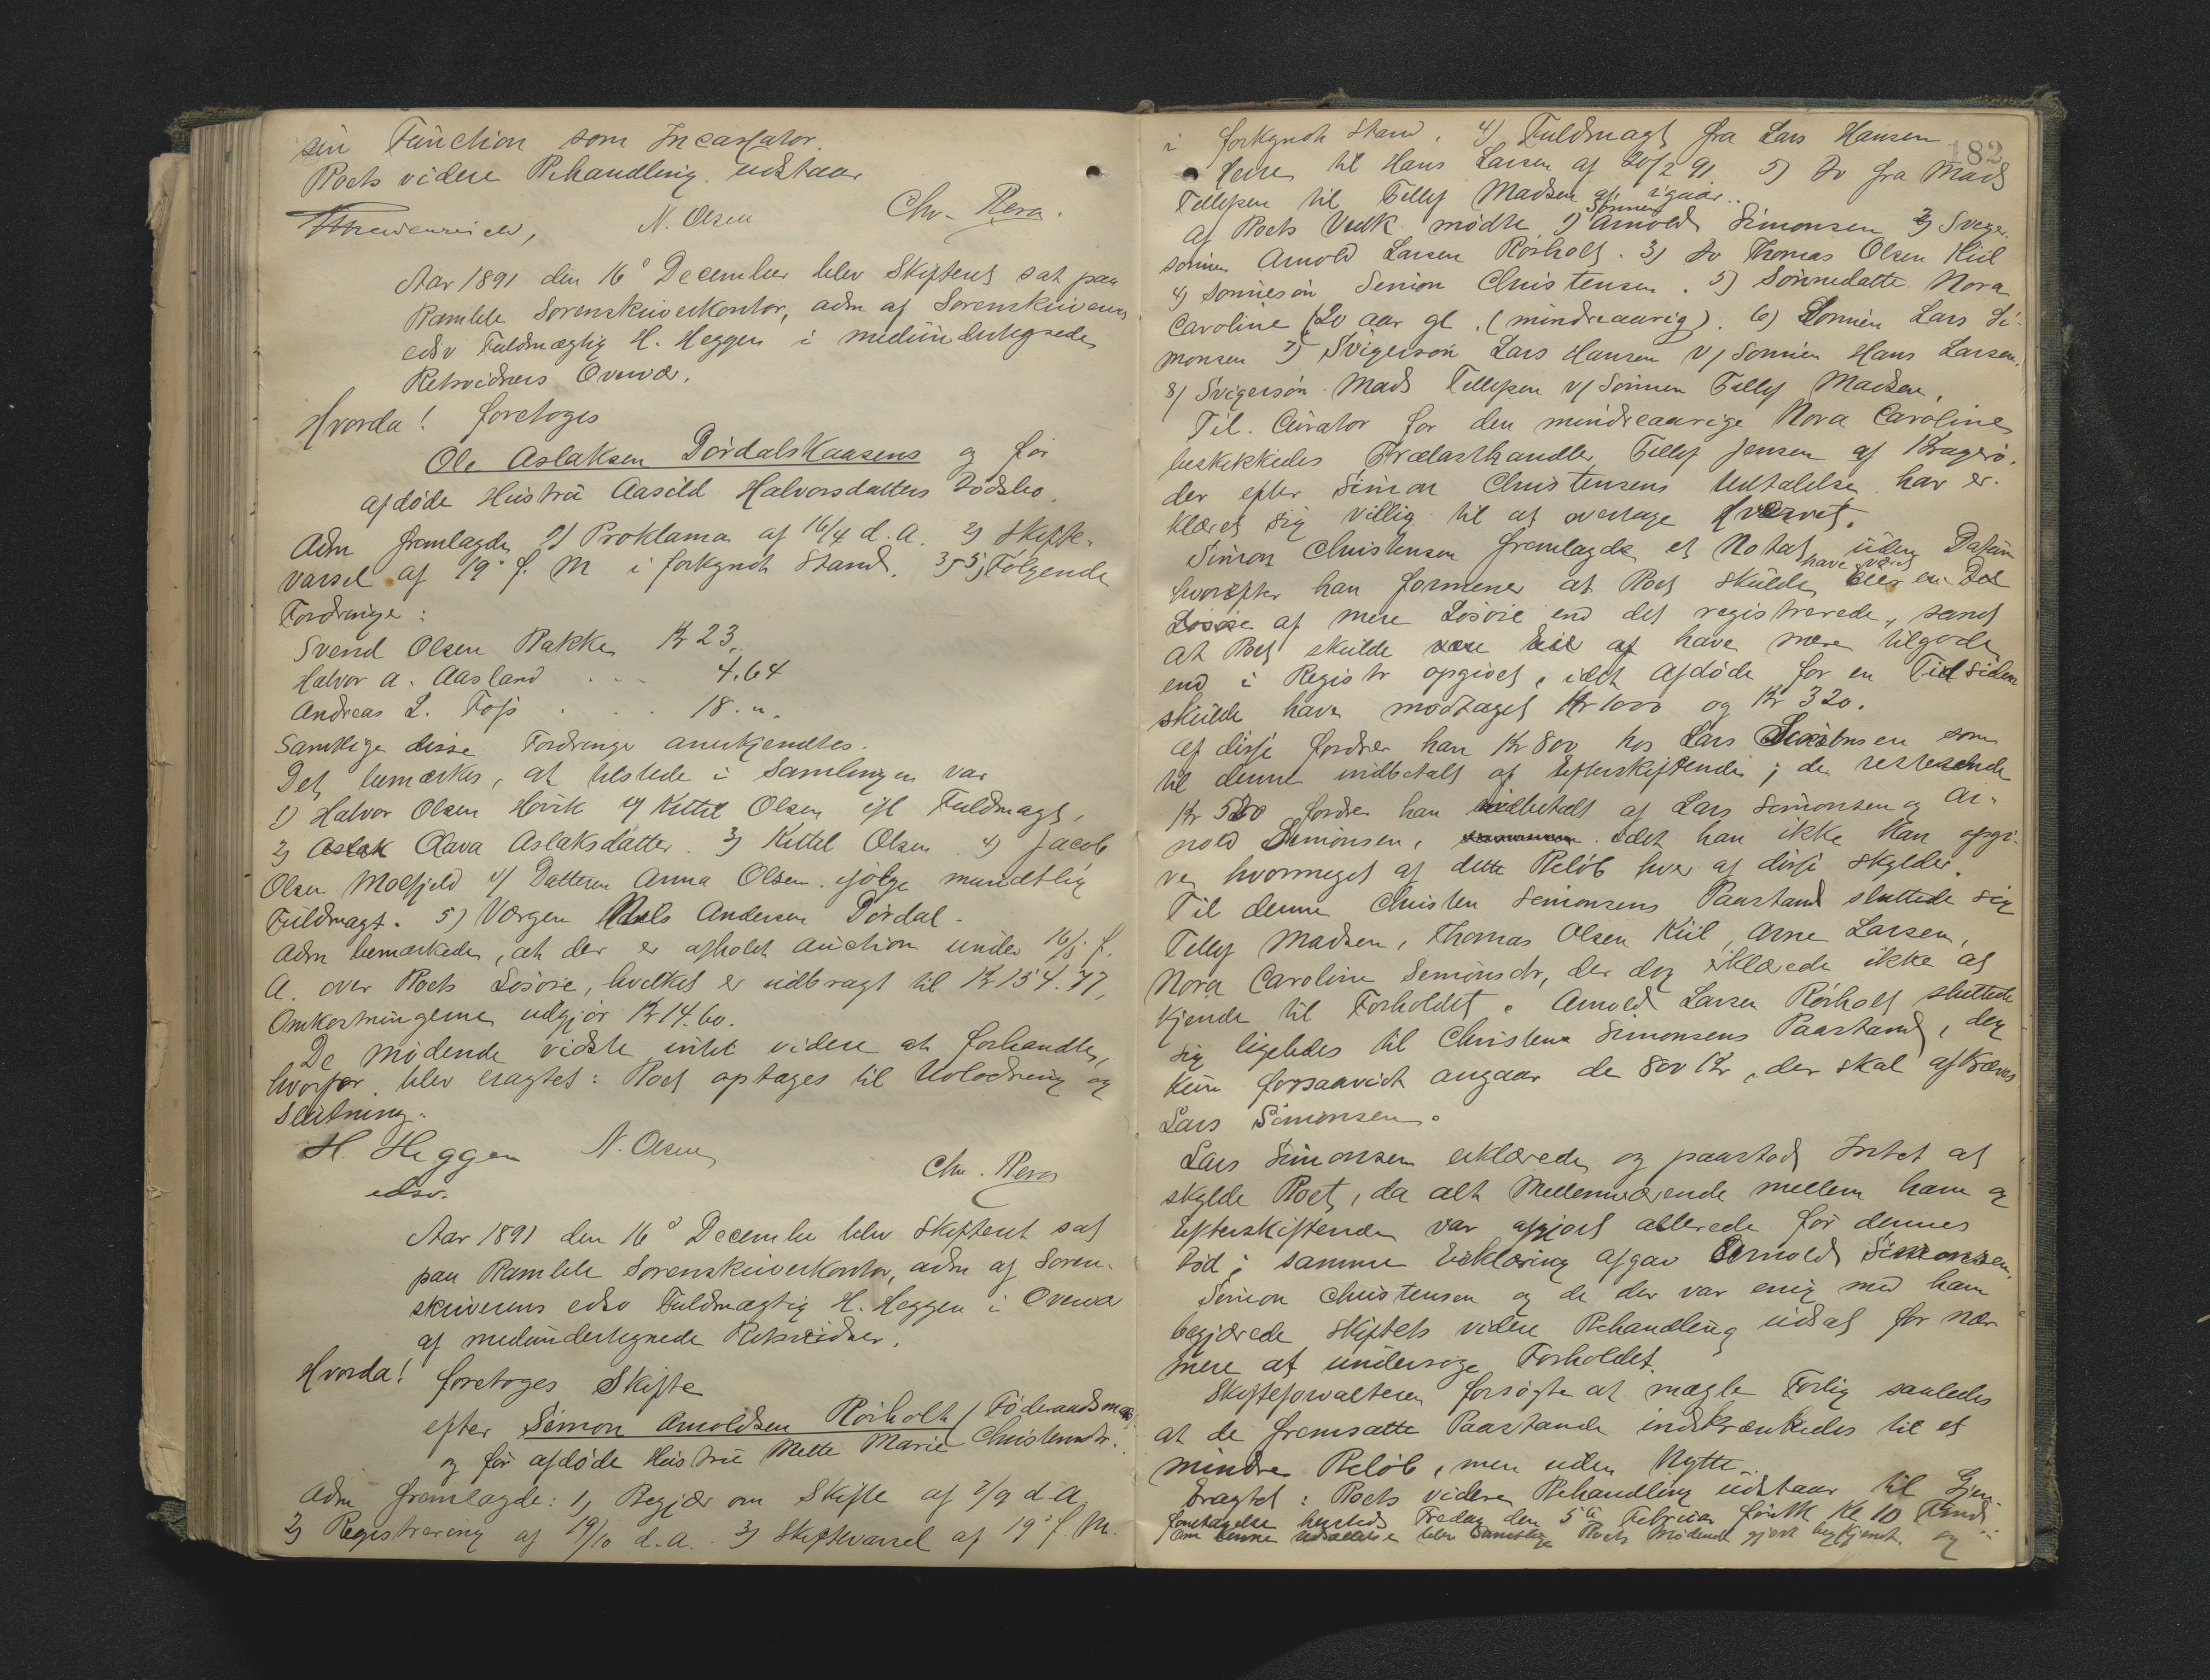 sin Function som Incassator.
Boets videre Behandling udstaar
N. Olsen
Chr. Rera.
Aar 1891 den 16de December blev Skifteret sat paa
Bamble Sorenskriverkontor, adm af Sorenskriverens
edsv Fuldmægtig H. Heggen i medundertegnede
Retsvidners Overvær.
Hvorda! foretoges
Ole Aslaksen Dørdalskaasens og før
afdøde Hustru Aasild Halvorsdatters Dødsbo.
Adm fremlagde 1) Proklama af 16/4 d. A. 2) Skifte-
varsel af 19de f. M i forkyndt Stand. 3)-5) Følgende
Fordringer:
Svend Olsen Bakke Kr 23,"
Halvor A. Aasland . . . 4.64
Andreas L. Foss . . . 18. "
Samtlige disse Fordringer anerkjendtes.
Det bemærkes, at tilstede i Samlingen var
1) Halvor Olsen Hovik v/ Kittel Olsen ifl Fuldmagt,
2) Aslak Aava Aslaksdatter. 3) Kittel Olsen. 4) Jacob
Olsen Molfjeld v/ Datteren Anna Olsen ifølge mundtlig
Fuldmagt. 5) Værgen Niels Andersen Dørdal.
Adm bemærkede, at der er afholdt Auction under 16/5 f.
A. over Boets Løsøre, hvilket er udbragt til Kr 154.47,
Omkostningerne udgjør Kr 14.60.
De mødende vidste intet videre at forhandle,
hvorfor blev eragtet: Boet optages til Udlodning og
Slutning.
H. Heggen N. Olsen
edsv.
Chr. Rera
Aar 1891 den 16de December blev Skifteret sat
paa Bamble Sorenskriverkontor, adm af Soren-
skriverens edsv Fuldmægtig H. Heggen i Overvær
af medundertegnede Retsvidner.
Hvorda! foretoges Skifte
efter Simon Arnoldsen Rørholt (Føderaadsmand)
og før afdøde Hustru Mette Marie Christensdtr.
Adm fremlagde: 1) Begjær om Skifte af 7/9 d. A
2) Registrering af 19/10 d. A. 3) Skiftevarsel af 19de f. M.
182
i forkyndt Stand. 4) Fuldmagt fra Lars Hansen
til Hans Larsen af 20/2 91 5) Do fra Mads
Tellefsen til Tellef Madsen af igaar.
Af Boets Vedk. mødte 1) Sønnen Arnold Simonsen 2) Sviger-
sønnen Arnold Larsen Rørholt. 3) Do Thomas Olsen Kiil
4) Sønnesøn Simon Christensen. 5) Sønnedatter Nora
Caroline (20 aar gl. (mindreaarig). 6) Sønnen Lars Si-
monsen 7) Svigersøn Lars Hansen v/ Sønnen Hans Larsen.
8) Svigersøn Mads Tellefsen v/ Sønnen Tellef Madsen.
Til Curator for den mindreaarige Nora Caroline
beskikkedes Trælasthandler Tellef Jensen af Kragerø,
der efter Simon Christensens Udtalelse har er-
klæret sig villig til at overtage Hvervet.
Simon Christensen fremlagde et Notat uden Datum
hvorefter han formener at Boet skulde have været Eier en Del
Løsøre af mere Løsøre end det registrerede, samt
at Boet skulde have mere tilgode
end i Registr opgivet, idet Afdøde for en Tid siden
skulde have modtaget Kr 1000 og Kr 320.
Af disse fordrer han Kr 800 hos Lars Simonsen som
til denne indbetalt af Efterskiftende; de resterende
Kr 520 fordrer han indbetalt af Lars Simonsen og Ar-
nold Simonsen, idet han ikke kan opgi-
ve hvormeget af dette Beløb hver af disse skylder.
Til denne Christen Simonsens Paastand sluttede sig
Tellef Madsen, Thomas Olsen Kiil, Arne Larsen,
Nora Caroline Simonsdr, der dog erklærede ikke at
kjende til Forholdet. Arnold Larsen Rørholt sluttede
sig ligeledes til Christen Simonsens Paastand, dog
kun forsaavidt angaar de 800 Kr, der skal afkræves
Lars Simonsen.
Lars Simonsen erklærede og paastod Intet at
skylde Boet, da alt Mellemværende mellem ham og
Efterskiftende var afgjort allerede før dennes
Død; samme Erklæring afgav Arnold Simonsen.
Simon Christensen og de der var enig med ham
begjærede Skiftets videre Behandling udsat for nær-
mere at undersøge Forholdet.
Skifteforvalteren forsøgte at mægle Forlig saaledes
at de fremsatte Paastande indskrænkedes til et
mindre Beløb, men uden Nytte.
Eragtet: Boets videre Behandling udstaar til Gjen-
foretagelse hersteds Fredag den 5te Februar førstk Kl 10 Fmd
Om denne Udsættelse blev samtlige Boets Mødende gjort bekjendt. og